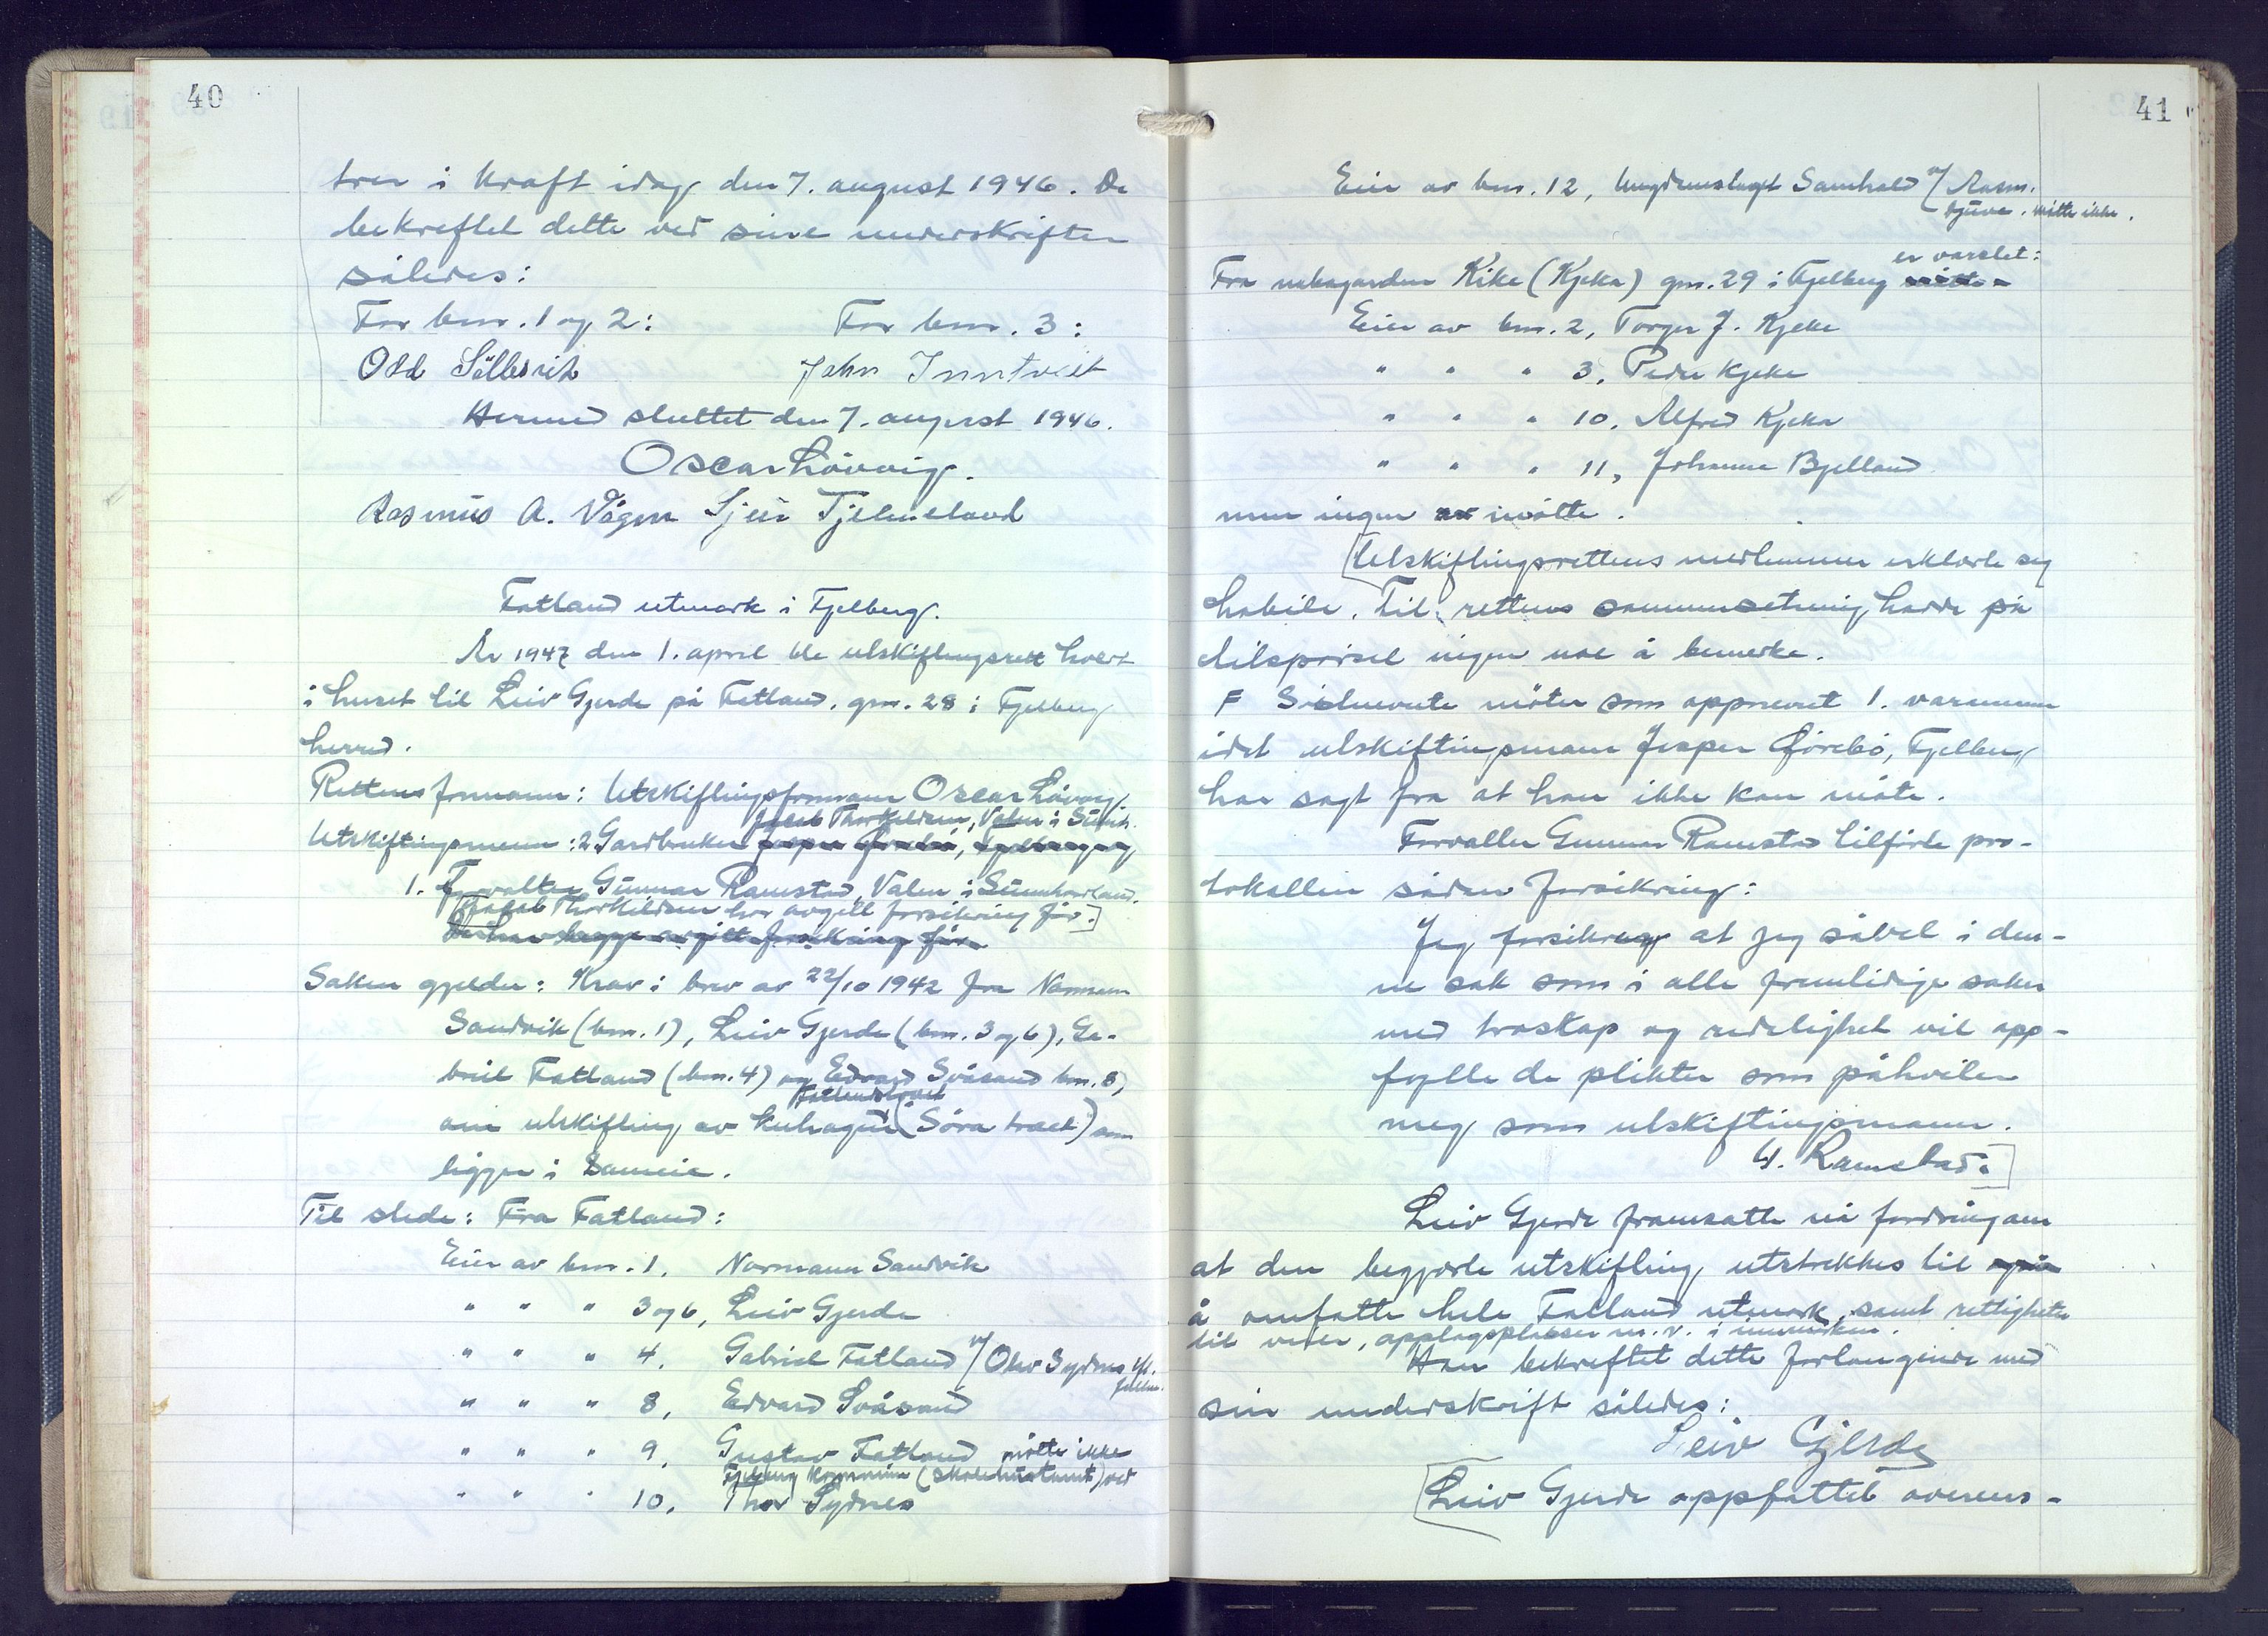 40
trer i kraft idag den 7. august 1946. De
bekreftet dette ved sine underskrifter
således:
For bnr. 1 og 2: For bnr. 3:
Odd John Inntveit
Hermed sluttet den 7. august 1946.
Oscar Løvvig.
Rasmus A. Vågen Sjur Tjelmeland
Fatland utmark i Fjelberg.
År 1947 den 1. april ble utskiftingsrett holdt
i huset til Leiv Gjerde på Fatland, gnr. 28 i Fjelberg
herred.
Rettens formann: Utskiftingsformann Oscar Løvvig.
Jakob Thorkildsen, Valen i Sunnh.
Utskiftingsmenn: 2 Gardbruker Jesper Gørebø, Fjelberg og
1. Forvalter Gunnar Ramstad, Valen i Sunnhordland.
Jakob Thorkildsen har avgitt forsikring før.]
De har begge avgitt forsikring før.
Saken gjelder: Krav i brev av 22/10 1942 fra Normann
Sandvik (bnr. 1), Leiv Gjerde (bnr. 3 og 6), Ga-
briel Fatland (bnr. 4) og Edvard Svåsand bnr. 8,
om utskifting av kuhagen (Søra traet) som
ligger i sameie.
Til stede: Fra Fatland:
Eier av bnr. 1, Normann Sandvik
" " " 3 og 6, Leiv Gjerde
" " " 4, Gabriel Fatland v/ Olav Sydnes
" " " 8, Edvard Svåsand
" " " 9, Gustav Fatland møtte ikke
Fjelberg kommune (skolehustomt) ved
" " " 10, Thor Sydnes
41
Eier av bnr. 12, Ungdomslaget Samhald v/ Rasm.
Djuve. møtte ikke.
er varslet:
Fra nabogarden Kike (Kjeka) gnr. 29 i Fjelberg møtte
Eier av bnr. 2, Torger J. Kjeke
" " " 3, Peder Kjeke
" " " 10, Alfred Kjeka
" " " 11, Johanna Bjelland
men ingen av møtte.
[Utskiftingsrettens medlemmer erklærte seg
habile. Til rettens sammensetning hadde på
tilspørsel ingen noe å bemerke.
F Sistnevnte møter som oppnevnt 1. varamann
idet utskiftingsmann Jesper Gørebø, Fjelberg
har sagt fra at han ikke kan møte.
Forvalter Gunnar Ramstad tilførte pro-
tokollen sådan forsikring:
Jeg forsikrer at jeg såvel i den-
ne sak som i alle fremtidige saker
med troskap og redelighet vil opp-
fylle de plikter som påhviler
meg som utskiftingsmann.
G. Ramstad.]
Leiv Gjerde framsatte nå fordring om
at den begjærte utskifting utstrekkes til også
å omfatte hele Fatland utmark, samt rettigheter
til veier, opplagsplasser m.v. i innmarken.
Han bekreftet dette forlangende med
sin underskrift således:
Leiv Gjerde
[Leiv Gjerde oppfattet overens-